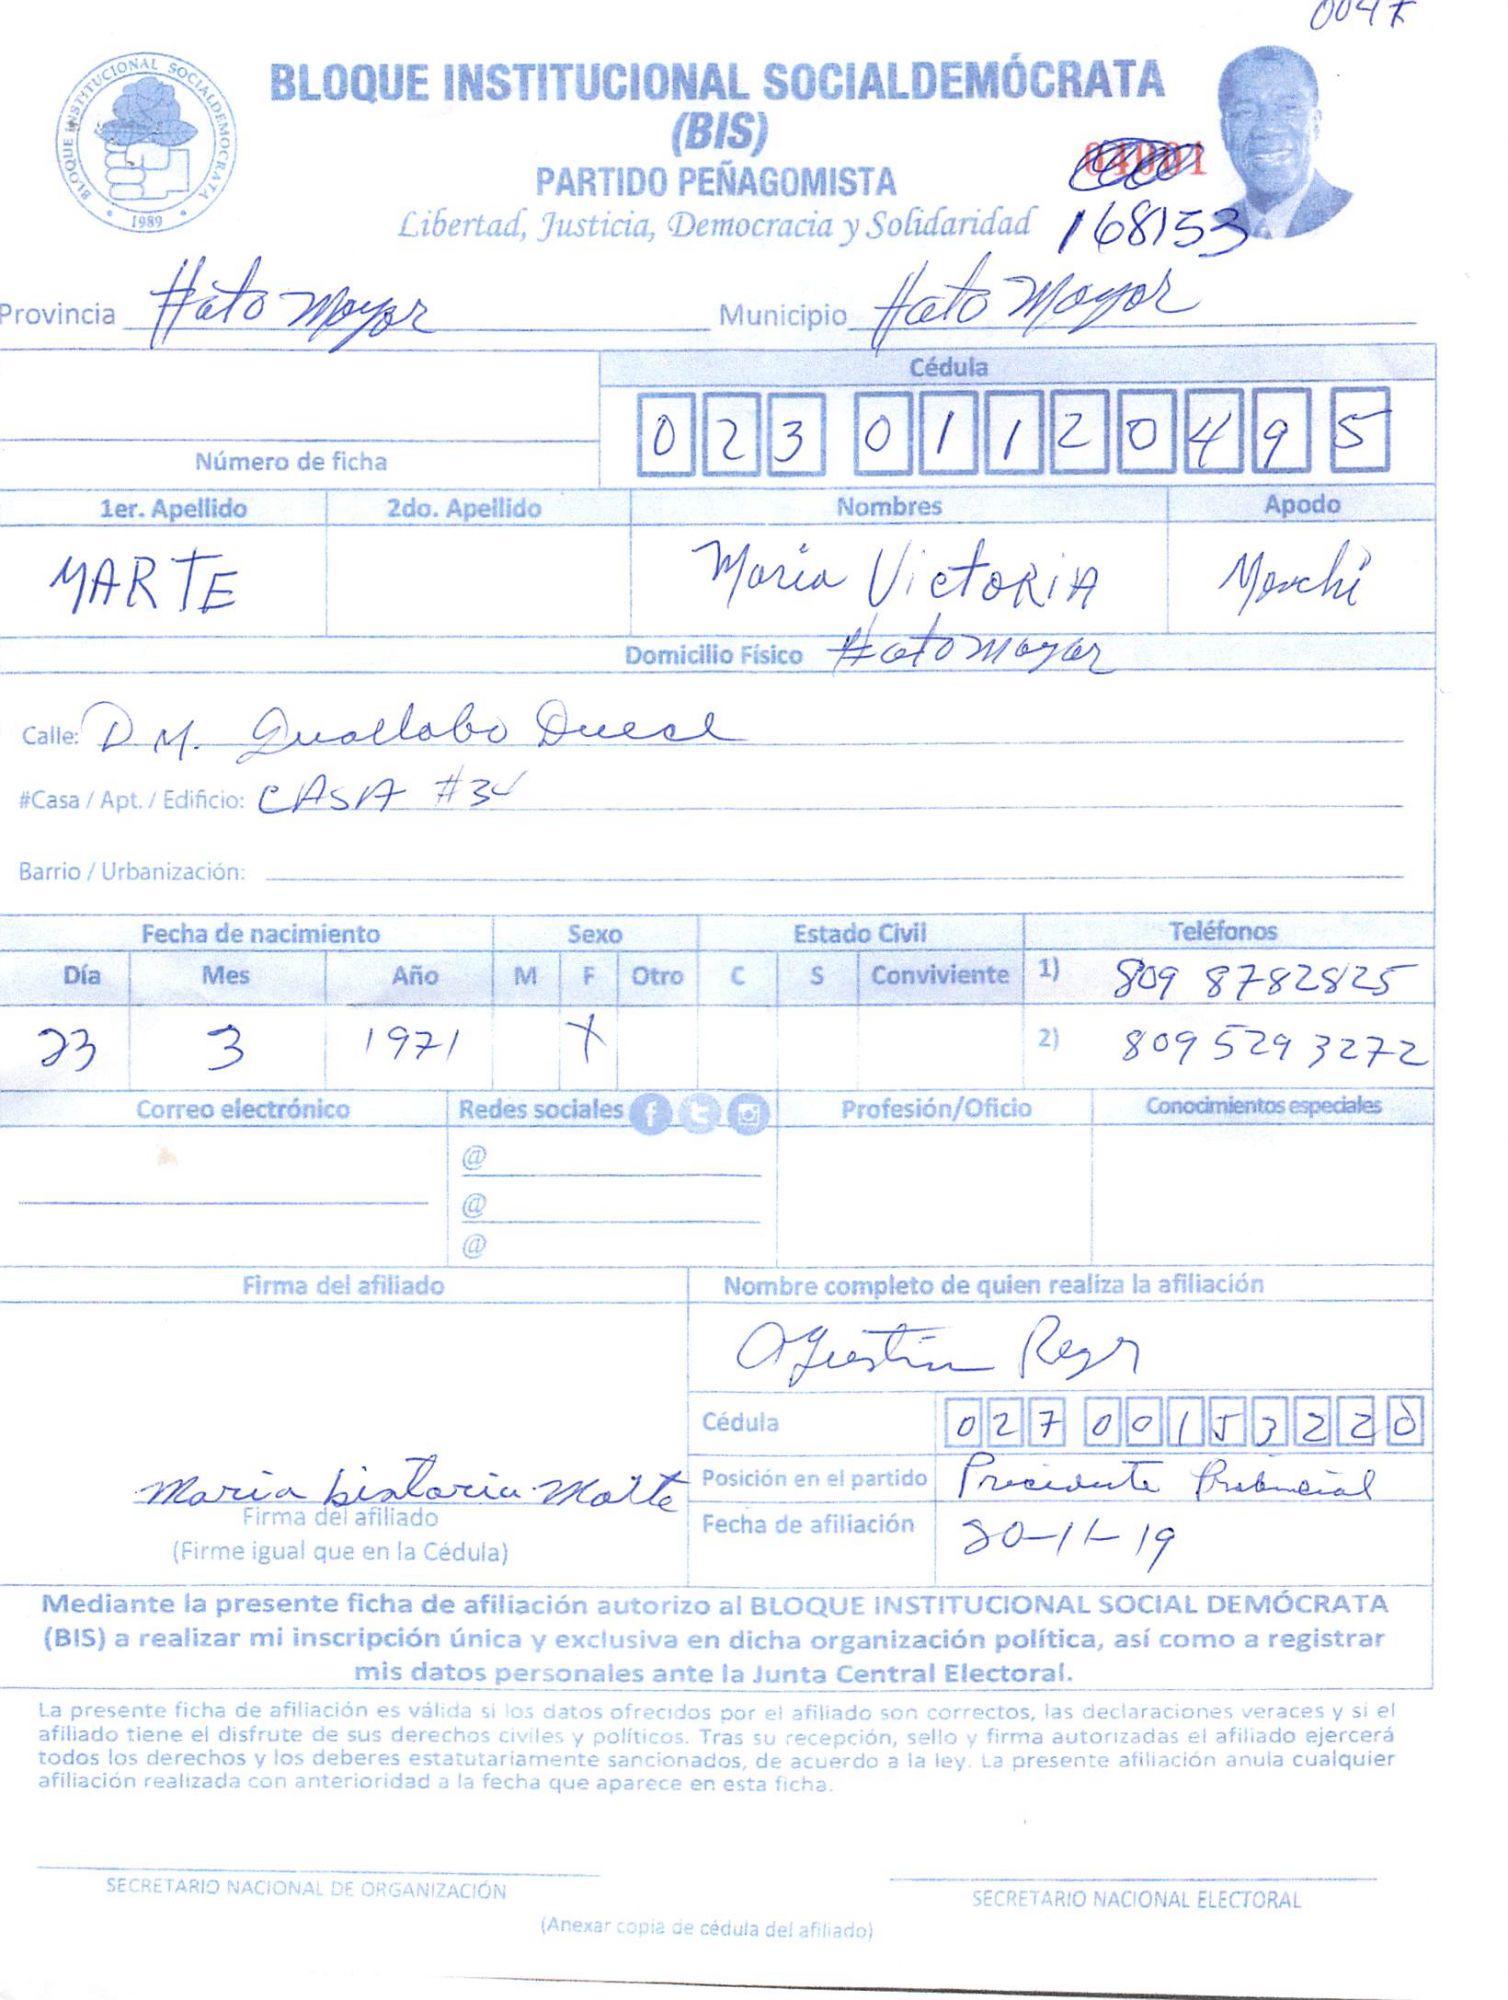 BLOQUE INSTITUCIONAL SOCIALDEMÓCRATA
(BIS)
PARTIDO PEÑAGOMISTA
Libertad, Justicia, Democracia y Solidaridad
BLOQUE INSTITUCIONAL SOCIALDEMOCRATA
1989
168153
Provincia Hato Mayor Municipio Hato Mayor
Cédula
0 2 3 0 1 1 2 0 4 9 5
Número de ficha
1er. Apellido 2do. Apellido Nombres Apodo
MARTE Maria VictoRiA
Domicilio Físico Hato mayor
Calle: D.M.
#Casa / Apt. / Edificio: CASA #34
Barrio / Urbanización:
Fecha de nacimiento Sexo Estado Civil Teléfonos
Día Mes Año M F Otro C S Conviviente 1) 809 8782825
23 3 1971 X 2) 809 529 3272
Correo electrónico Redes sociales Profesión/Oficio Conocimientos especiales
@
@
@
Firma del afiliado Nombre completo de quien realiza la afiliación
Cédula 0 2 7 0 0 1 5 3 2 2 0
Maria Marte Posición en el partido Provincial
Firma del afiliado Fecha de afiliación 20-11-19
(Firme igual que en la Cédula)
Mediante la presente ficha de afiliación autorizo al BLOQUE INSTITUCIONAL SOCIAL DEMÓCRATA
(BIS) a realizar mi inscripción única y exclusiva en dicha organización política, así como a registrar
mis datos personales ante la Junta Central Electoral.
La presente ficha de afiliación es válida si los datos ofrecidos por el afiliado son correctos, las declaraciones veraces y si el
afiliado tiene el disfrute de sus derechos civiles y políticos. Tras su recepción, sello y firma autorizadas el afiliado ejercerá
todos los derechos y los deberes estatutariamente sancionados, de acuerdo a la ley. La presente afiliación anula cualquier
afiliación realizada con anterioridad a la fecha que aparece en esta ficha.
SECRETARIO NACIONAL DE ORGANIZACIÓN
SECRETARIO NACIONAL ELECTORAL
(Anexar copia de cédula del afiliado)